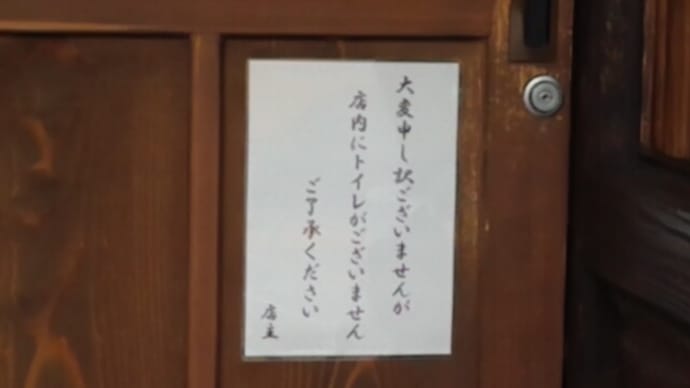 大変申し訳ございませんが
店内にトイレがございません
ご了承ください
店主